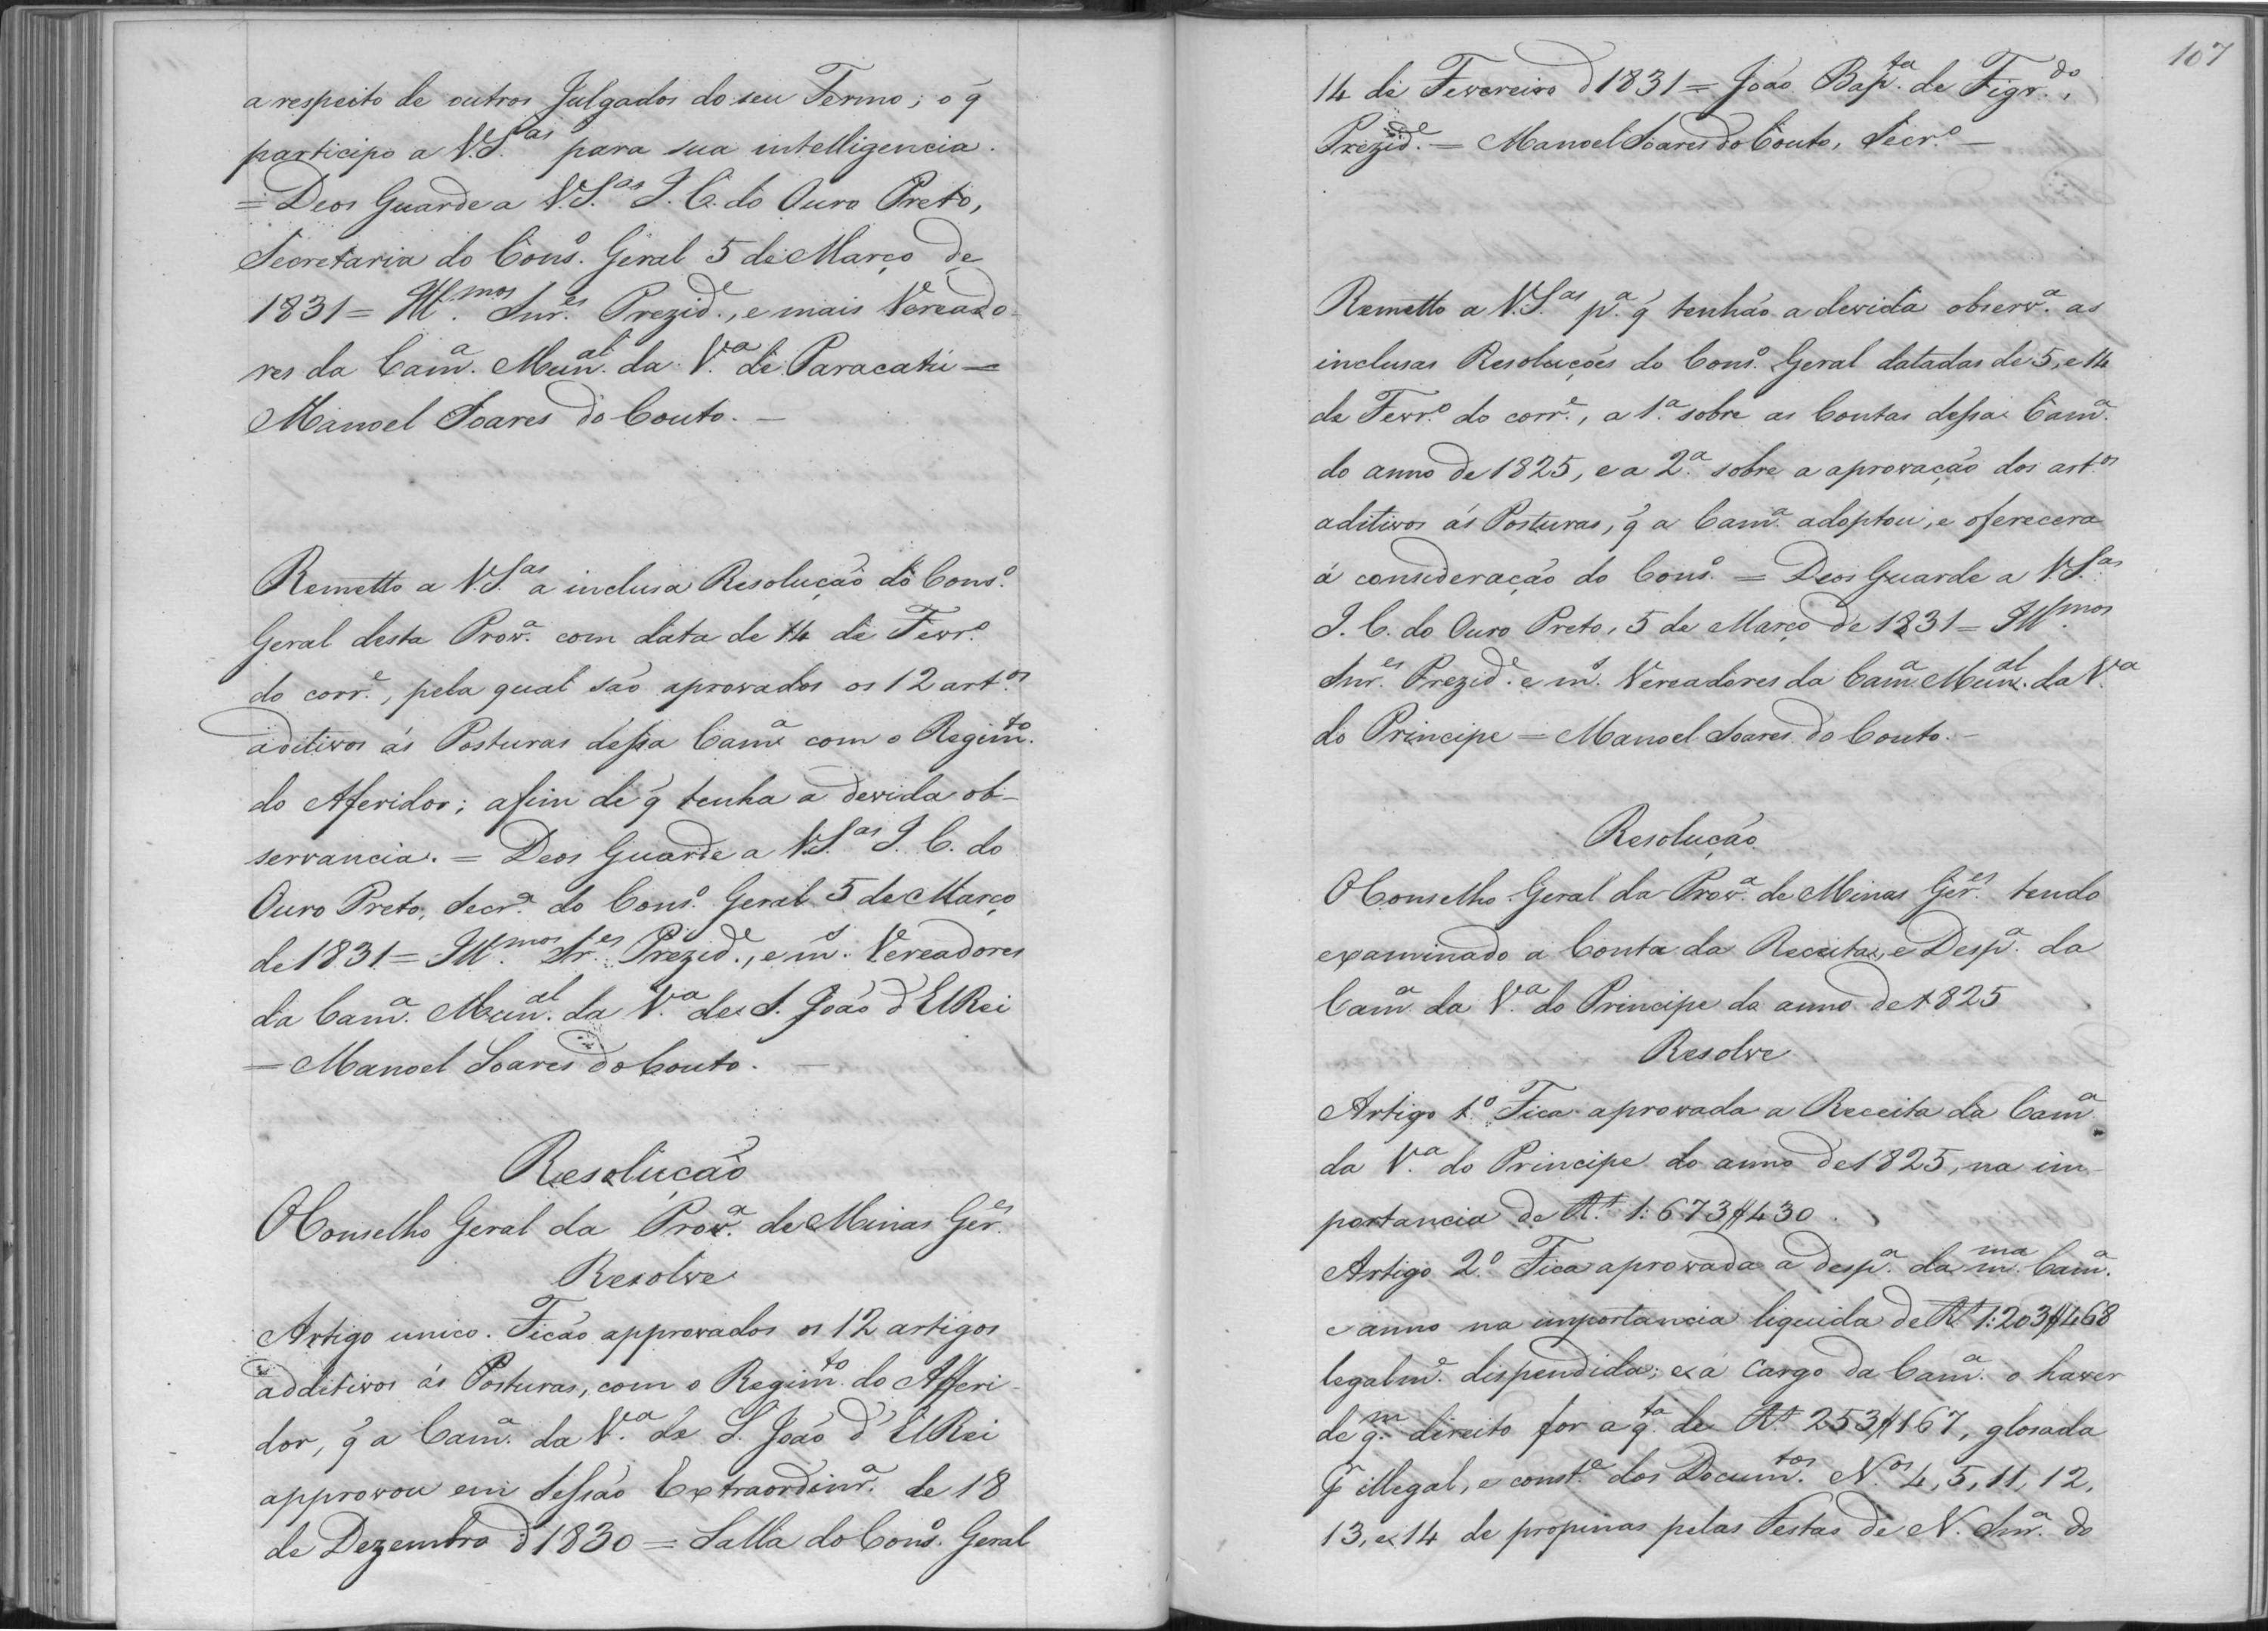 a respeito de outros Julgados do seu Termo; o q̃
participo a V.S.as para sua intelligencia.
= Deos Guarde a V.S.as I. C. do Ouro Preto,
Secretaria do Cons.o Geral 5 de Março de
1831 = Ill.mos Snr.es Prezid.e, e mais Vereado-
res da Cam.a Mun.al da V.a de Paracatú =
Manoel Soares do Couto. —
Remetto a V.S.as a inclusa Resolução do Cons.o
Geral desta Prov.a com data de 14 de Fevr.o
do corr.e, pela qual são aprovados os 12 art.os
aditivos ás Posturas dessa Cam.a com o Regim.to
do Aferidor; afim de q̃ tenha a devida ob-
servancia. = Deos Guarde a V.S.as I. C. do
Ouro Preto, Secr.a do Cons.o Geral 5 de Março
de 1831 = Ill.mos Sr.es Prezid.e, e m.s Vereadores
da Cam.a Mun.al da V.a de S. João d'ElRei
= Manoel Soares do Couto. —
Resolução
O Conselho Geral da Prov.a de Minas Ger.es
Resolve
Artigo unico. Ficão approvados os 12 artigos
additivos ás Posturas, com o Regim.to do Afferi-
dor, q̃ a Cam.a da V.a de S. João d'ElRei
approvou em Sessão Extraordinr.a de 18
de Dezembro d 1830 = Salla do Cons.o Geral
107
14 de Fevereiro d 1831 = João Bap.ta de Figr.do,
Prezid.e = Manoel Soares do Couto, Secr.o —
Remetto a V.S.as p.a q̃ tenhão a devida observ.a as
inclusas Resoluções do Cons.o Geral datadas de 5, e 14
de Fevr.o do corr.e, a 1.a sobre as Contas dessa Cam.a
do anno de 1825, e a 2.a sobre a aprovação dos art.os
aditivos ás Posturas, q̃ a Cam.a adoptou, e oferecera
á consideração do Cons.o = Deos Guarde a V.S.as
I. C. do Ouro Preto, 5 de Março de 1831 = Ill.mos
Snr.es Prezid.e e m.s Vereadores da Cam.a Mun.al da V.a
do Principe = Manoel Soares do Couto. —
Resolução
O Conselho Geral da Prov.a de Minas Ger.es tendo
examinado a Conta da Receita, e Desp.a da
Cam.a da V.a do Principe do anno de 1825
Resolve
Artigo 1.o Fica aprovada a Receita da Cam.a
da V.a do Principe do anno de 1825, na im-
portancia de R.s 1:673$430.
Artigo 2.o Fica aprovada a desp.a da m.ma Cam.a
e anno na importancia liquida de R.s 1:203$468
legalm.e dispendida; e á cargo da Cam.a o haver
de q.m direito for a q.ta de R.s 253$167, glosada
p̃ illegal, e const.e dos Docum.tos N.os 4, 5, 11, 12,
13, e 14 de propinas pelas Festas de N. Snr.a do